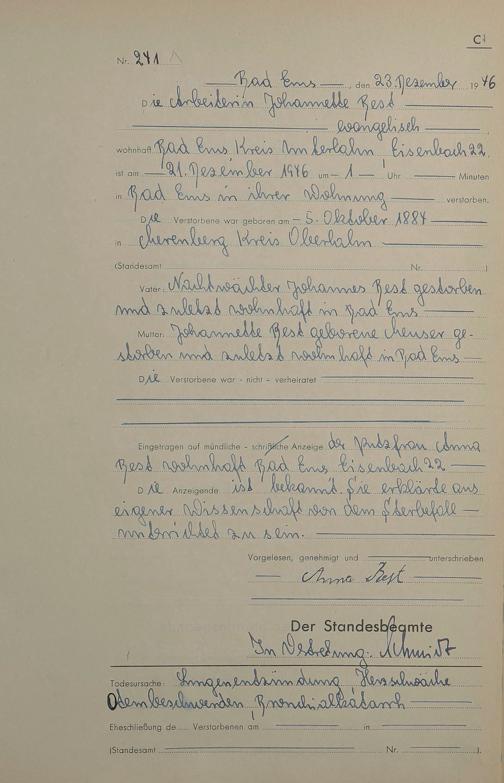 C1
Nr. 241
Bad Ems, den 23. Dezember 1946
Die Arbeiterin Johannette Best
evangelisch
wohnhaft Bad Ems Kreis Unterlahn Eisenbach 22
ist am 21. Dezember 1946 um 1 Uhr Minuten
in Bad Ems in ihrer Wohnung verstorben.
Die Verstorbene war geboren am 5. Oktober 1884
in Merenberg Kreis Oberlahn
(Standesamt Nr. )
Vater: Nachtwächter Johannes Best gestorben
und zuletzt wohnhaft in Bad Ems
Mutter: Johannette Best geborene Meuser ge-
storben und zuletzt wohnhaft in Bad Ems
Die Verstorbene war - nicht - verheiratet
Eingetragen auf mündliche - schriftliche Anzeige der Putzfrau Anna
Best wohnhaft Bad Ems Eisenbach 22
Die Anzeigende ist bekannt. Sie erklärte aus
eigener Wissenschaft von dem Sterbefalle
unterrichtet zu sein.
Vorgelesen, genehmigt und unterschrieben
Anna Best
Der Standesbeamte
In Vertretung: Schmidt
Todesursache: Lungenentzündung, Herzschwäche
Odembeschwerden, Bronchialkatarrh
Eheschließung de Verstorbenen am in
(Standesamt Nr. ).